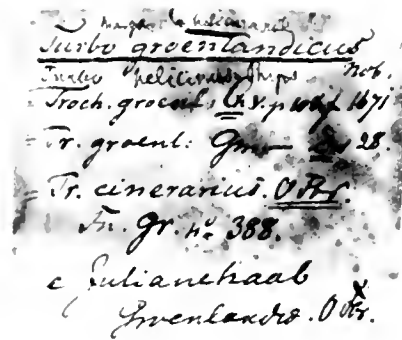 Turbo groenlandicus
Turbo helicinus Phips Nob.
= Troch. groenl. 1671
= Tr. groenl: Gm 28.
= Tr. cinerarius. O Fbr.
Fn. Gr. no 388.
e Julianehaab
Groenlandiæ. O Fbr.